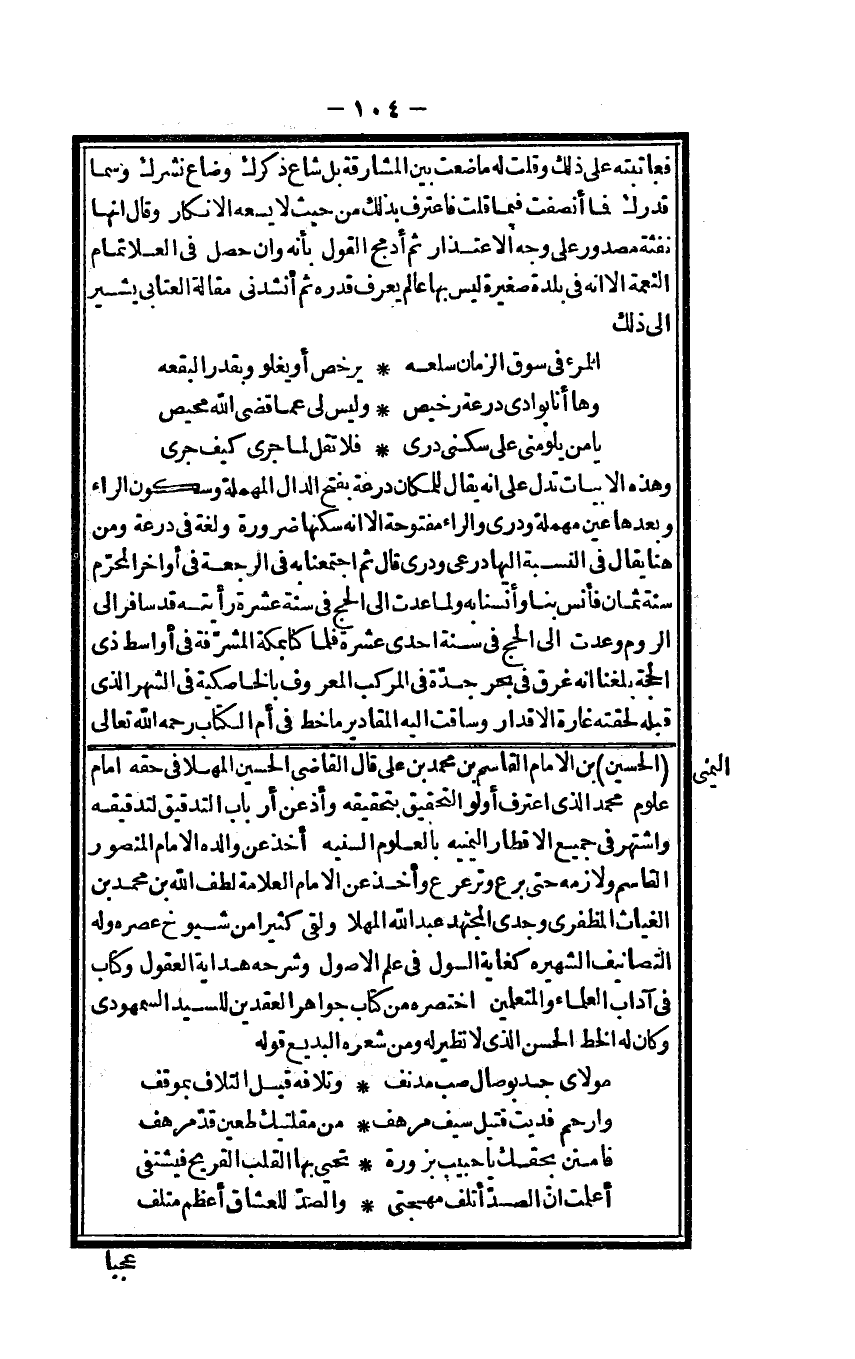 - ١٠٤ -
فعاتبته على ذلك وقلت له ماضعت بين المشارقة بل شاع ذكرك وضاع نشرك وسما
قدرك فما أنصفت فيما قلت فاعترف بذلك من حيث لا يسعه الانكار وقال انها
نفثة مصدور على وجه الاعتذار ثم أدمج القول بأنه وان حصل فى العلا تمام
النعمة الاانه فى بلدة صغيرة ليس بها عالم يعرف قدره ثم أنشدنى مقالة العتابى يشير
الى ذلك
المرء فى سوق الزمان سلعه * يرخص أو يغلو وبقدر البقعه
وها أنا بوادى درعة رخيص * وليس لى عما قضى الله محيص
يا من يلومنى على سكنى درى * فلا تقل لما جرى كيف جرى
وهذه الابيات تدل على انه يقال للمكان درعة بفتح الدال المهملة وسكون الراء
وبعدها عين مهملة ودرى والراء مفتوحة الاانه سكنها ضرورة ولغة فى درعة ومن
هنا يقال فى النسبة الها درعى ودرى قال ثم اجتمعنا به فى الرجعة فى أواخر المحرّم
سنة ثمان فأنس بنا وأنسنا به ولما عدت الى الحج فى سنة عشرة رأيته قد سافر الى
الروم وعدت الى الحج فى سنة احدى عشرة فلما كنا بمكة المشرّفة فى أواسط ذى
الحجة بلغنا انه غرق فى بحر جدّة فى المركب المعروف بالخاصكية فى الشهر الذى
قبله لحقته غارة الاقدار وساقت اليه المقادير ماخط فى أم الكتاب رحمه الله تعالى
اليمنى
(الحسين) بن الامام القاسم بن محمد بن على قال القاضى الحسين المهلا فى حقه امام
علوم محمد الذى اعترف أولو التحقيق بتحقيقه وأذعن أرباب التدقيق لتدقيقه
واشتهر فى جميع الاقطار اليمنيه بالعلوم السنيه أخذ عن والده الامام المنصور
القاسم ولازمه حتى برع وترعرع وأخذ عن الامام العلامة لطف الله بن محمد بن
الغياث المظفرى وجدى المجتهد عبد الله المهلا ولقى كثيرا من شيوخ عصره وله
التصانيف الشهيره كغاية السول فى علم الاصول وشرحه هداية العقول وكتاب
فى آداب العلماء والمتعلمين اختصره من كتاب جواهر العقدين للسيد السمهودى
وكان له الخط الحسن الذى لا نظير له ومن شعره البديع قوله
مولاى جد بوصال صب مدنف * وتلافه قبل التلاف بموقف
وارحم فديت قتيل سيف مرهف * من مقلتيك طعين قدّ مرهف
فامنن بحقك يا حبيب بزورة * تحيى بها القلب القريح فيشتفى
أعلمت انّ الصدّ أتلف مهجتى * والصدّ للعشاق أعظم متلف
عجبا